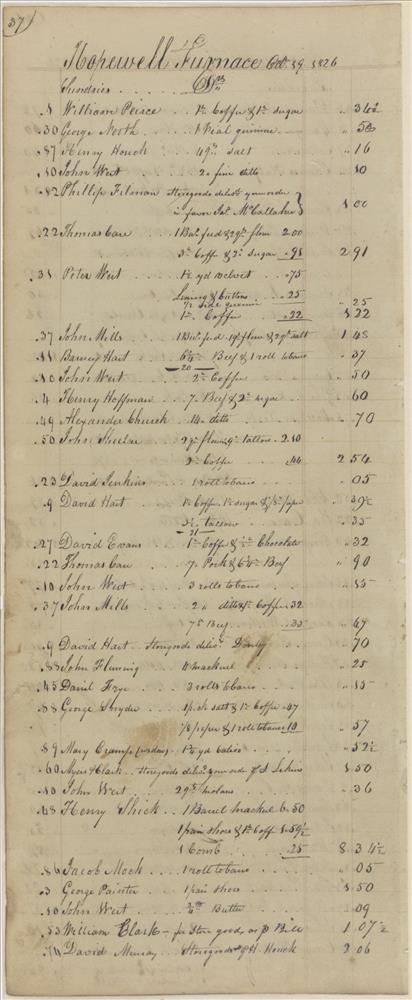 37
Hopewell Furnace Oct. 19 1826
Sundries Drs
.8 William Peirce 1 lb Coffee & 1 lb sugar " 34½
.30 George North 1 Vial " 50
.87 Henry Houck 49 lb salt " 16
.10 John West 2 " fine ditto " 10
.82 Phillip Filman Storegoods deliv'd your order
in favor Jas. McCallaher 1 00
.22 Thomas Care 1 Bu. feed & 29 lb flour 2.00
3 lb Coffe & 2 lb sugar .91 2 91
.31 Peter West 1½ yd velvet .75
Lining & Buttons .25
" 25
1 lb Coffee .22 1 22
.37 John Mills 1 Bu. feed 19 lb flour & 29 lb salt 1 48
.11 Barney Hart 6¼ Beef & 1 roll tobacco " 37
20
.10 John West 2 lb Coffee " 50
.4 Henry Hoffman 7 " Beef & 2 lb sugar " 60
.49 Alexander Church 14 " ditto " 70
.50 John Sheelar 29 lb flour 9 lb tallow 2.10
2 lb Coffe .44 2 54
.23 David Jenkins 1 roll tobacco " 05
.9 David Hart 1 lb Coffe 1 lb sugar & ⅛ lb pepper " 39½
3½ " 35
21
.27 David Evans 1 lb Coffe & ½ lb Chocolate " 32
.22 Thomas Care 7 " Pork & 6¼ lb Beef " 90
.10 John West 3 rolls tobacco " 15
.37 John Mills 2 " ditto & 1 lb Coffee .32
7 lb Beef .35 " 67
.9 David Hart Storegoods deliv'd " 70
.88 John Fleming 4 mackrel " 25
.45 David Frye 3 rolls tobacco " 15
.88 George Snyder 1 peck salt & 1 lb Coffe .47
⅛ pepper & 1 roll tobacco 10 " 57
.89 Mary Cramp (widow) 1½ yd calico " 52½
.60 Myer & Clark Storegoods deliv'd your order 1 50
.10 John West 29 lb " 36
.48 Henry Shick 1 Barrel mackrel 6.50
1 pair shoes & 1 lb Coffe 1.59½
1 Comb .25 8 34½
.86 Jacob Mock 1 roll tobacco " 05
.3 George Painter 1 pair shoes 1 50
.10 John West Butter " 09
.53 William Clark for Store goods as pr Bill 1 07½
.74 David Murray Storegoods H. Houck 2 06